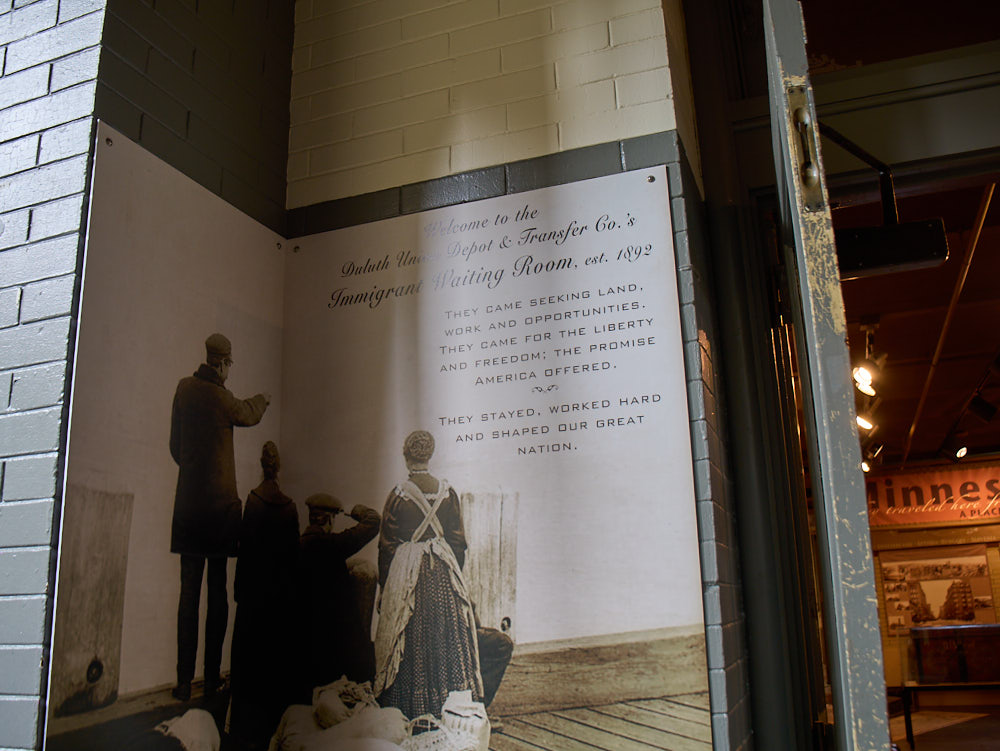 Welcome to the
Duluth Union Depot & Transfer Co.'s
Immigrant Waiting Room, est. 1892
They came seeking land,
work and opportunities.
They came for the liberty
and freedom; the promise
America offered.
They stayed, worked hard
and shaped our great
nation.
Minnes
traveled here f
A PLAC